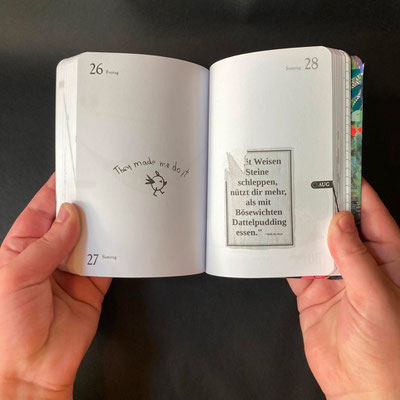 26 Freitag
They made me do it
27 Samstag
Sonntag 28
Mit Weisen
Steine
schleppen,
nützt dir mehr,
als mit
Bösewichten
Dattelpudding
essen."
AUG